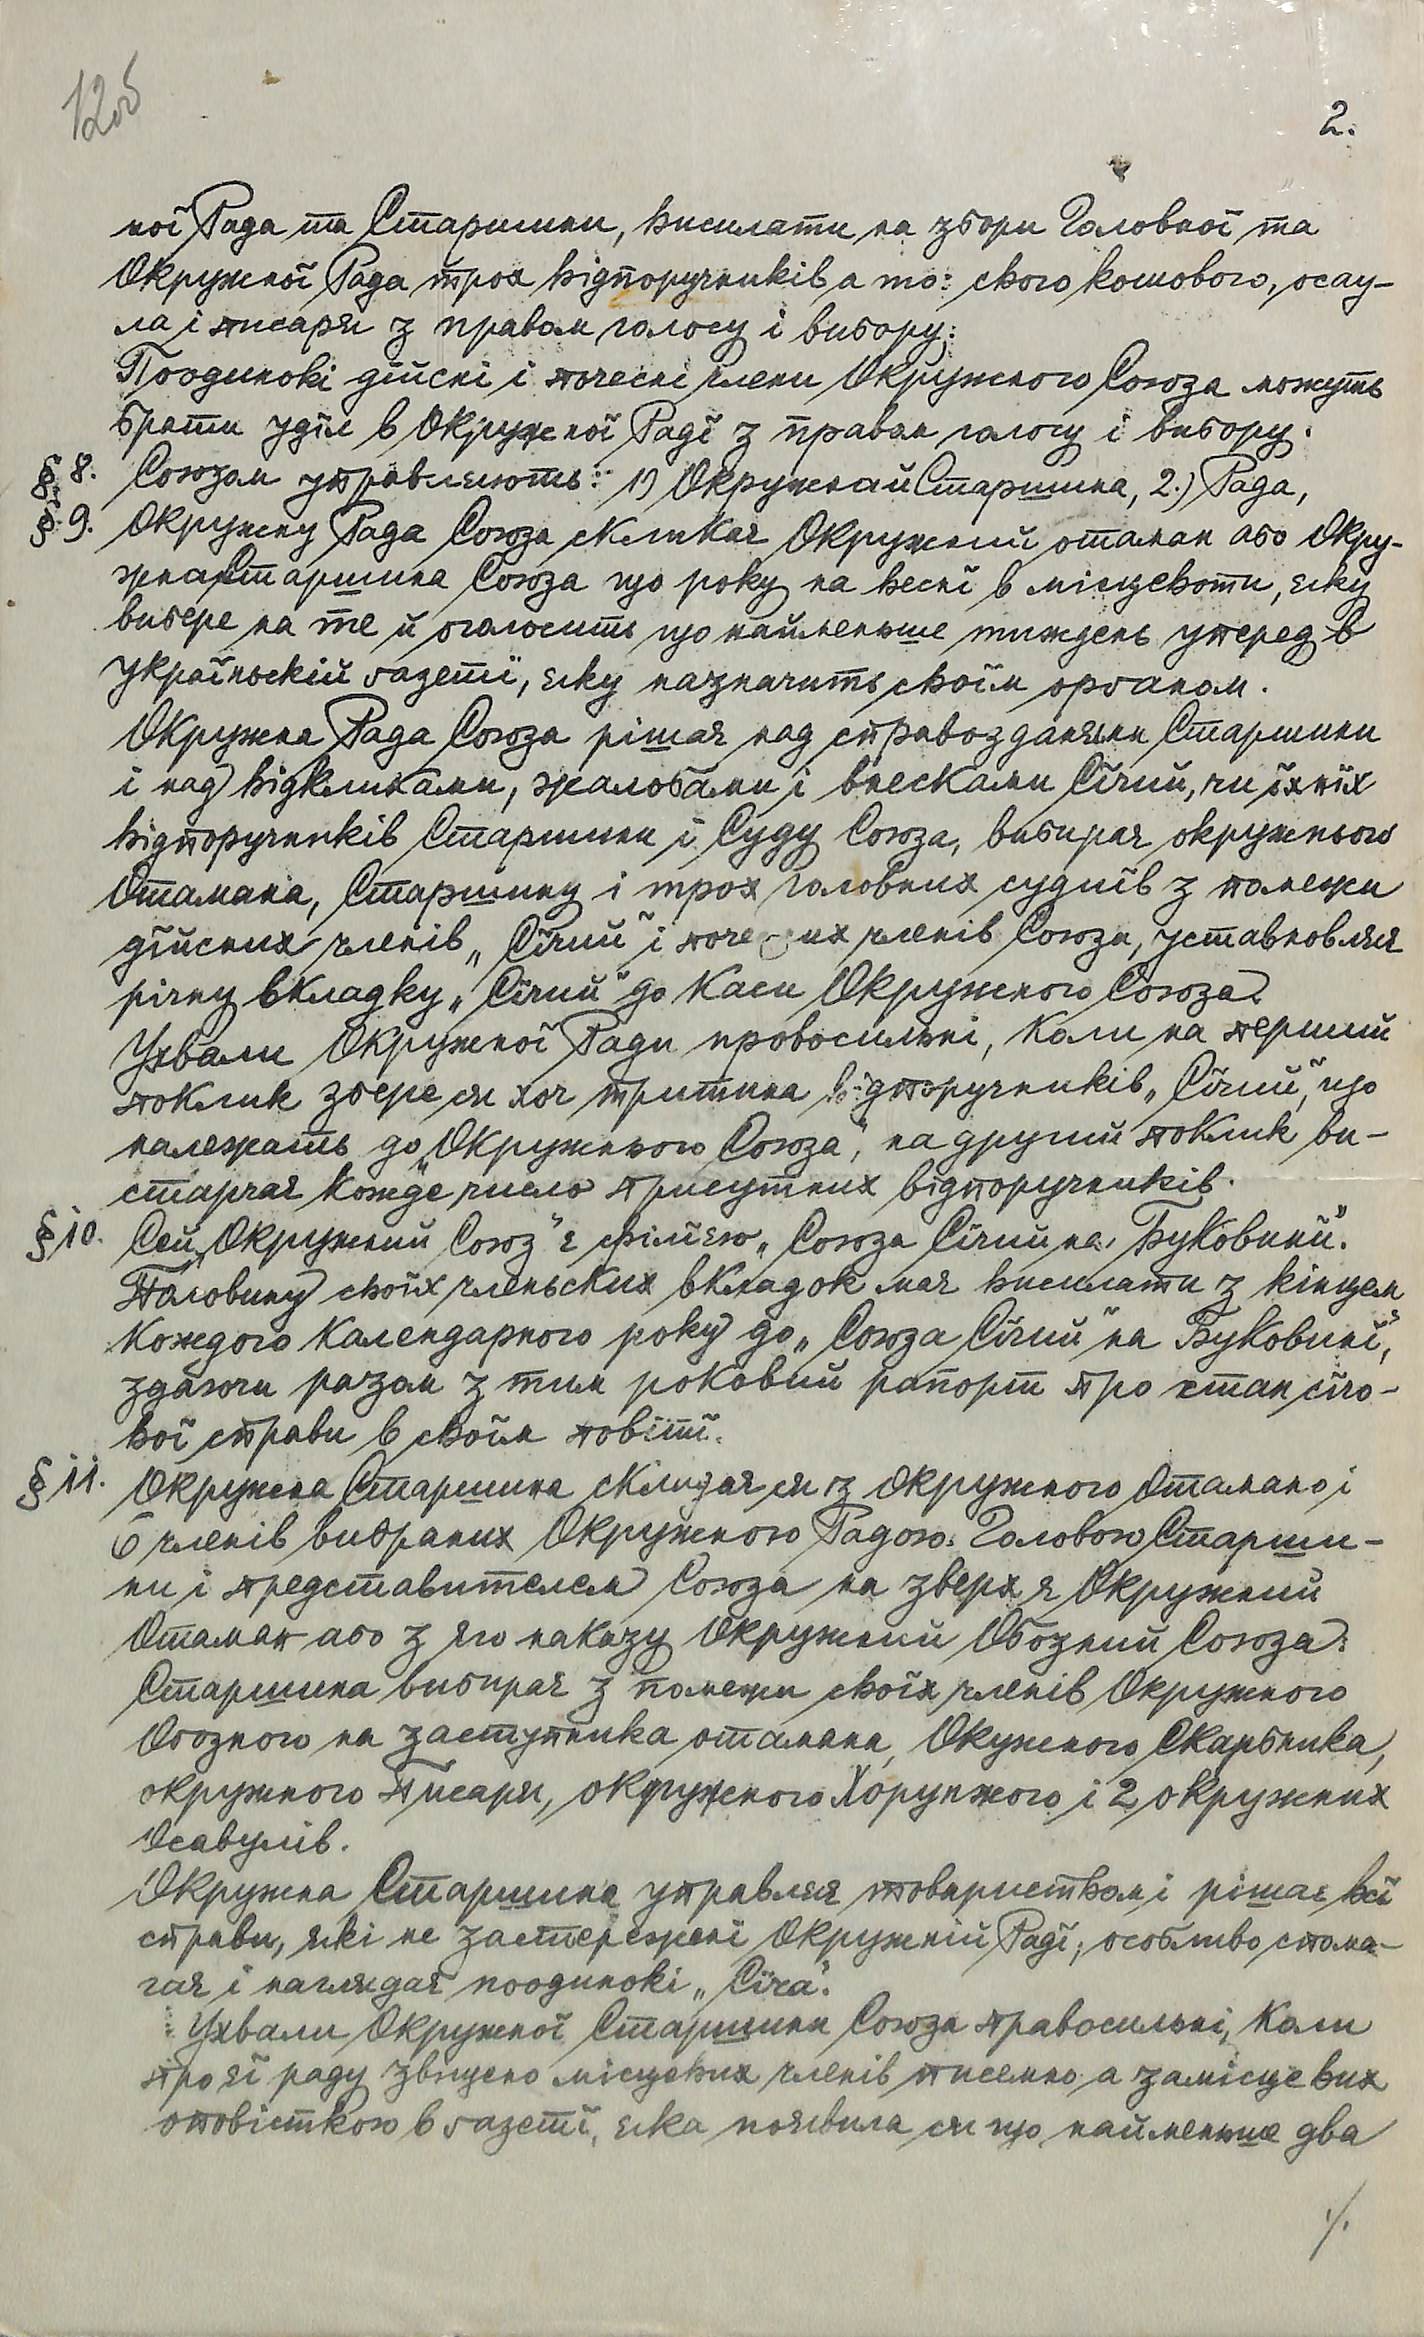 12об
2.
ної Рада та Старшини, висилати на збори Головної та
Окружної Рада трох відпоручників а то: свого кошового, осау-
ла і писаря з правом голосу і вибору;
Поодинокі дїйсні і почесні члени Окружного Союза можуть
брати удїл в Окружної Радї з правом голосу і вибору.
§ 8. Союзом управляють: 1) Окружнай Старшина, 2.) Рада,
§ 9. Окружну Рада Союза скликає Окружний отаман або Окру-
жна Старшина Союза що року на веснї в місцевоти, яку
вибере на те й оголосить що найменьше тиждень уперед в
українській ґазетї, яку назначить своїм орґаном.
Окружна Рада Союза рішає над справозданями Старшини
і над відкликами, жалобами і внесками Сїчий, чи їхнїх
відпоручників Старшини і Суду Союза, вибирає окружнього
Отамана, Старшину і трох головних суднїв з помежи
дїйсних членів „Сїчий" і поче них членів Союза, уставновляє
річну вкладку „Сїчий" до каси Окружного Союза.
Ухвали Окружної Ради провосильні, коли на перший
поклик збере ся хоч третина відпоручників „Сїчий", що
належать до „Окружного Союза", на другий поклик ви-
старчає кожде число присутних відпоручників.
§ 10. Сей „Окружний Союз" є філїєю „Союза Сїчий на Буковинї".
Половину своїх членьских вкладок має висилати з кінцем
кождого календарного року до „Союза Сїчий" на Буковинї",
здаючи разом з тим роковий рапорт про стан сїчо-
вої справи в своїм повітї.
§ 11. Окружна Старшина складає ся з окружного Отамано і
6 членів вибраних Окружною Радою. Головою Старши-
ни і представителем Союза на зверх є Окружний
Отаман або з яго наказу Окружний Обозний Союза.
Старшина вибирає з помежи своїх членів Окружного
Обозного на заступника отамана, Окужного Скарбника,
окружного Писаря, окружного Хорунжого і 2 окружних
Осавулів.
Окружна Старшина управляє товариством і рішає всї
справи, які не застережені Окружній Радї, особливо спома-
гає і наглядає поодинокі „Сїча".
Ухвали Окружної Старшини Союза правосильні, коли
про її раду звіщено місцевих членів писемно а замісцевих
оповісткою в ґазетї, яка появила ся що найменьше два
./.